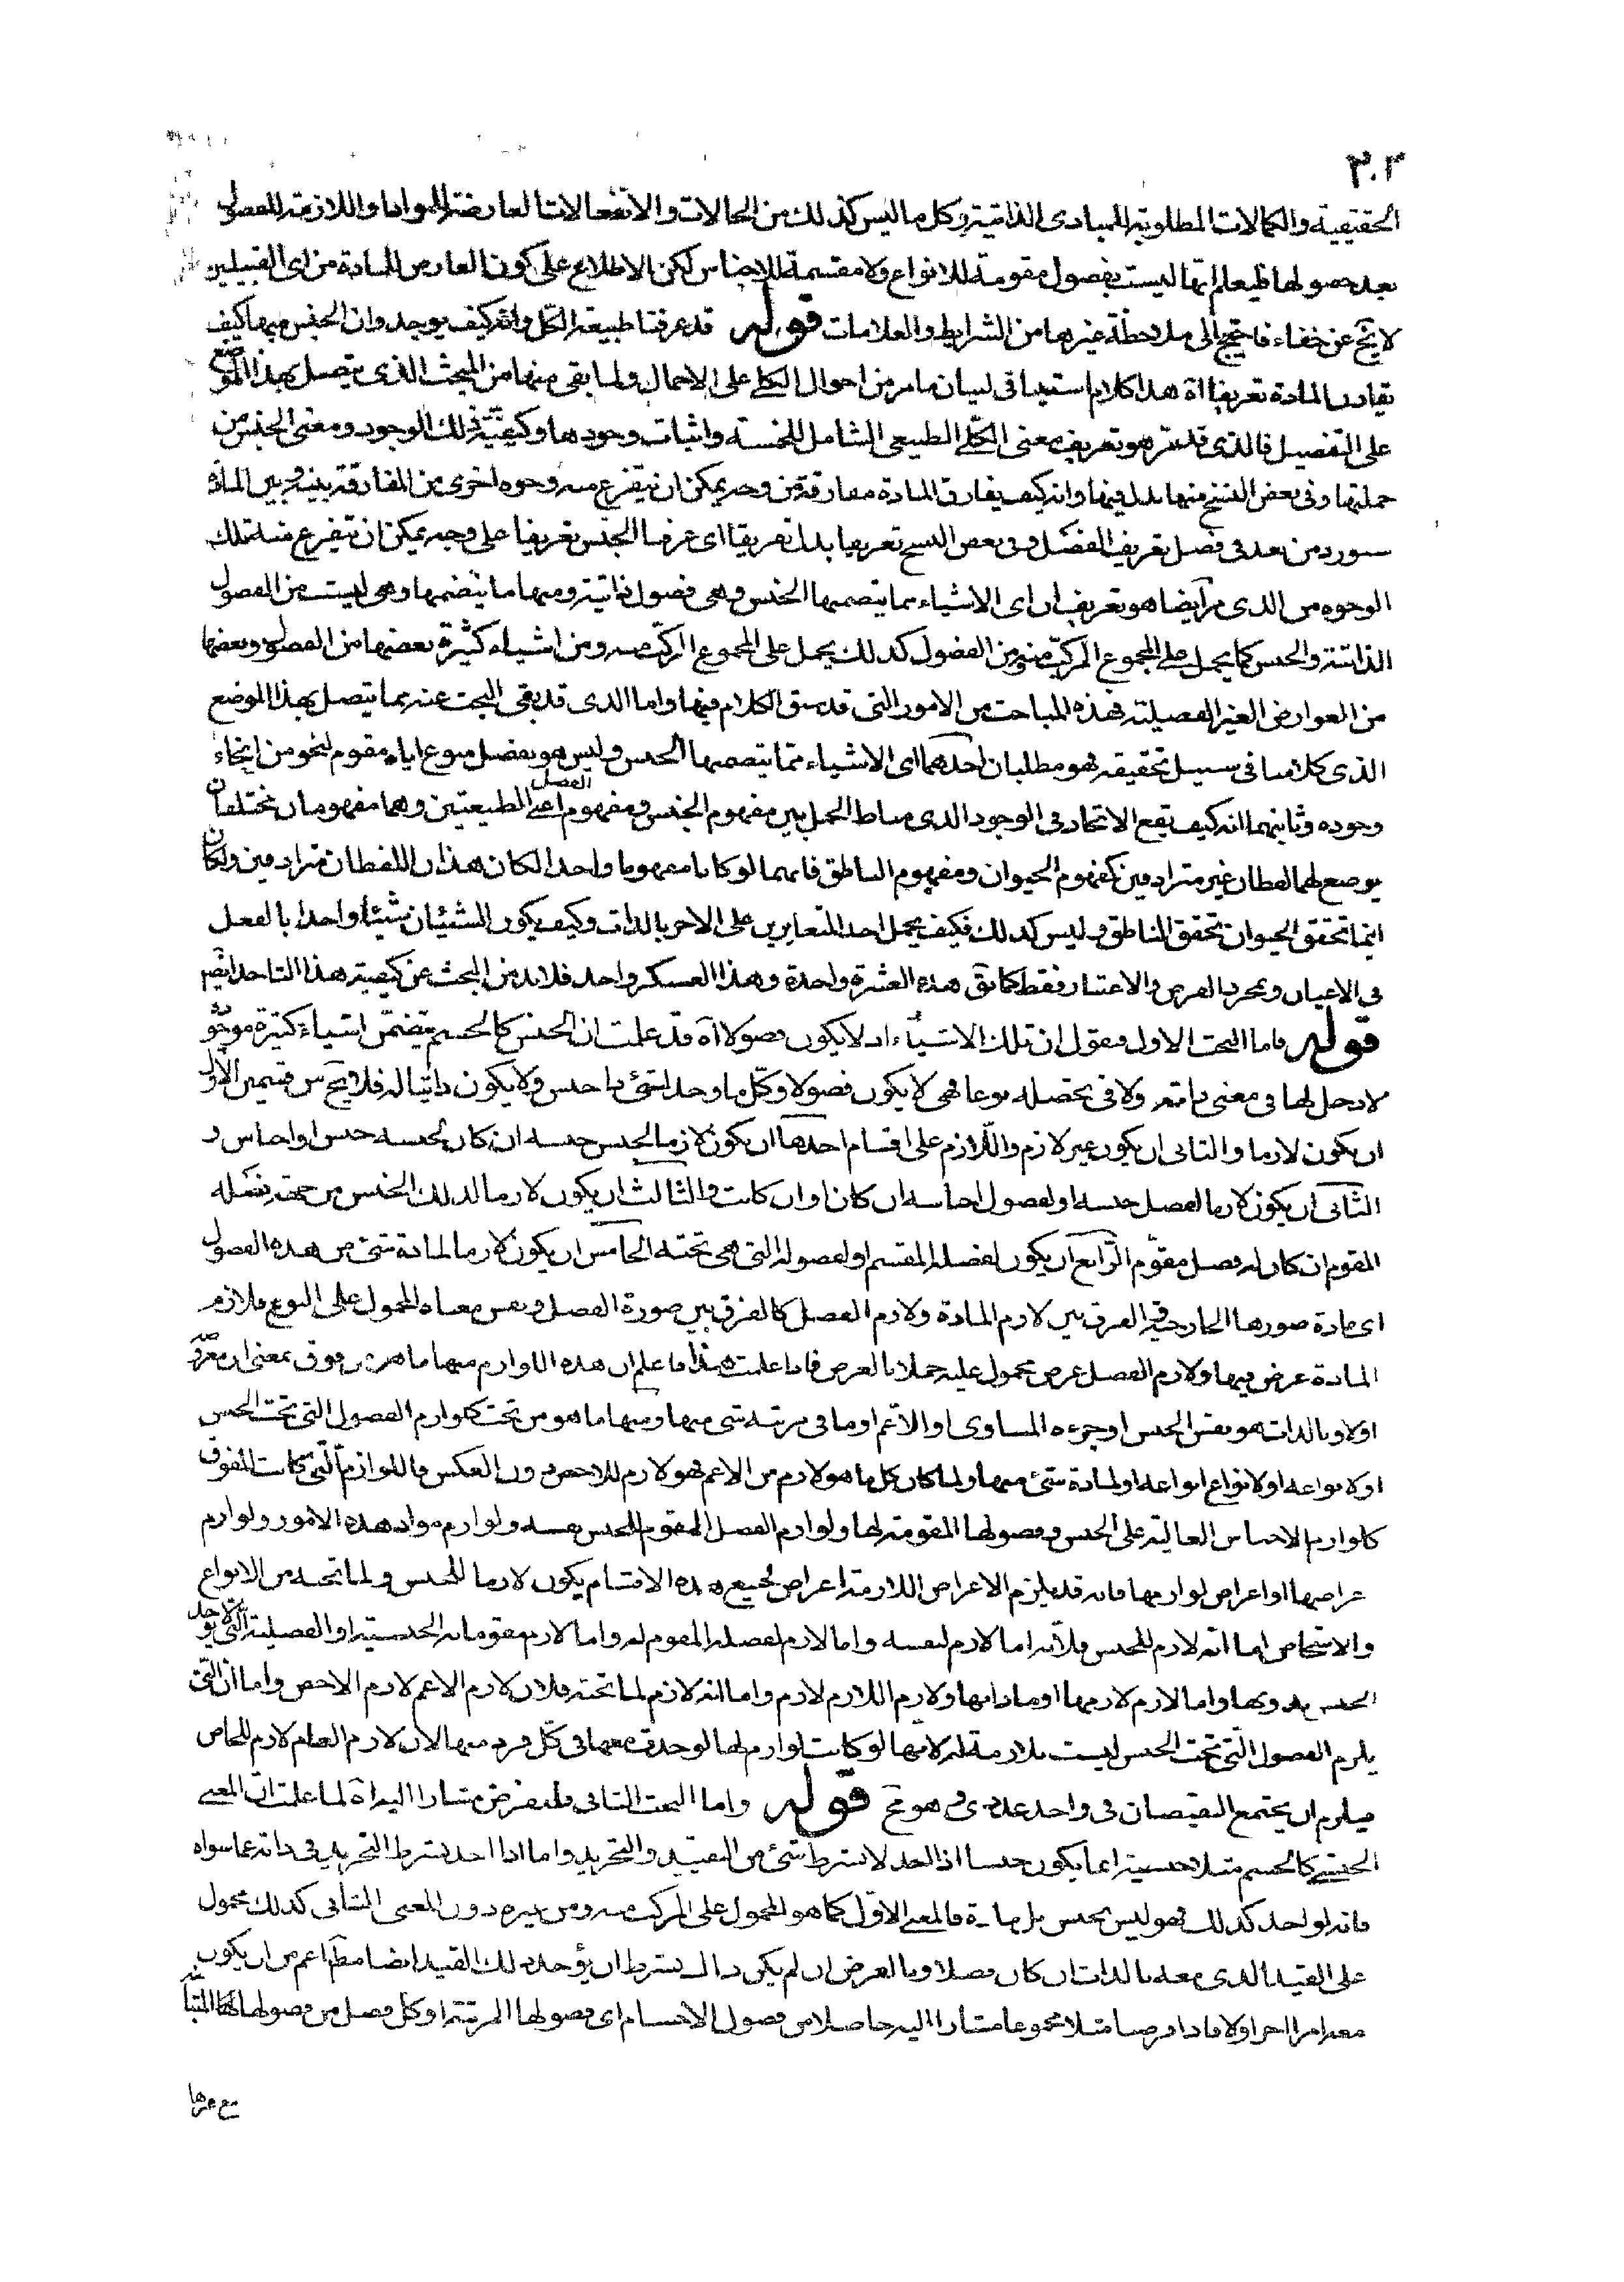 ٢٠٢
الحقيقية والكمالات المطلوبة للمبادى الذاتية وكل ما ليس كذلك من الحالات والانفعالات العارضة للمواد او اللازمة للفصول
بعد حصولها فليعلم انها ليست بفصول مقومة للانواع ولا مقسمة للاجناس لكن الاطلاع على كون العارض للمادة من اى القبيلين
لا يخ عن خفاء فاحتيج الى ملاحظة غيرها من الشرايط والعلامات قوله قد عرفنا طبيعة الكل وانه كيف يوجد وان الجنس منها كيف
يفارق المادة تعريفا اه هذا كلام استينافى لبيان ما مر من احوال الكلى على الاجمال ولما بقى منها من المبحث الذى يتصل بهذا الموضع
على التفصيل فالذى قد مر هو تعريف معنى الكلى الطبيعى الشامل للخمسة واثبات وجودها وكيفية ذلك الوجود ومعنى الجنس من
جملتها وفى بعض النسخ منها بدل فيها وانه كيف يفارق المادة مفارقة من وجه يمكن ان يتفرع منه وجوه اخرى من المفارقة بينه وبين المادة
سنورد من بعد فى فصل تعريف الفصل وفى بعض النسخ تعريفا بدل تفريقا اى عرفنا الجنس تعريفا على وجه يمكن ان يتفرع منه تلك
الوجوه من الذى مر ايضا هو تعريف ان اى الاشياء مما يتضمنها الجنس وهى فصول ذاتية ومنها ما يتضمنها وهى ليست من الفصول
الذاتية والجنس كما يحمل على المجموع المركب منه ومن الفصول كذلك يحمل على المجموع المركب منه ومن اشياء كثيرة بعضها من الفصول وبعضها
من العوارض الغير الفصيلية فهذه المباحث من الامور التى قد سبق الكلام فيها واما الذى قد بقى البحث عنه مما يتصل بهذا الموضع
الذى كلامنا فى سبيل تحقيقه فهو مطلبان احدهما اى الاشياء مما يتضمنها الجنس وليس هو بفصل منوع اياه مقوم لنحو من انحاء
وجوده وثانيهما انه كيف يقع الاتحاد فى الوجود الذى مناط الحمل بين مفهوم الجنس ومفهوم الفصل اعنى الطبيعتين وهما مفهومان مختلفان
يوضع لهما لفظان غير مترادفين كمفهوم الحيوان ومفهوم الناطق فانهما لو كانا مفهوما واحدا لكان هذان اللفظان مترادفين ولكان
اينما تحقق الحيوان تحقق الناطق وليس كذلك فكيف يحمل احد المتغايرين على الاخر بالذات وكيف يكون الشيئان شيئا واحدا بالفعل
فى الاعيان وبمجرد الفرض والاعتبار فقط كما يق هذه العشرة واحدة وهذا العسكر واحد فلا بد من البحث عن كيفية هذا التاحد ايضا
قوله فاما البحث الاول فنقول ان تلك الاشياء اذ لا يكون فصولا اه قد علمت ان الجنس كالجسم يتضمن اشياء كثيرة موجودة
لا دخل لها فى معنى ذاته ولا فى تحصله نوعا فهى لا يكون فصولا وكل ما وجد لشئ ما جنس ولا يكون ذاتيا له فلا يخ من قسمين الاول
ان يكون لازما والثانى ان يكون غير لازم واللازم على اقسام احدها ان يكون لازما لجنس جنسه ان كان لجنسه جنس او اجناس و
الثانى ان يكون لازما لفصل جنسه او لفصول اجناسه ان كان او ان كانت والثالث ان يكون لازما لذلك الجنس من جهة فصله
المقوم ان كان له فصل مقوم الرابع ان يكون لفصله المقسم او لفصوله التى هى تحته الخامس ان يكون لازما لمادة شئ من هذه الفصول
اى مادة صورها الخارجية والفرق بين لازم المادة ولازم الفصل كالفرق بين صورة الفصل ونفس معناه المحمول على النوع فلازم
المادة عرض فيها ولازم الفصل عرض محمول عليه حملا بالعرض فاذا علمت هذا فاعلم ان هذه اللوازم منها ما هو من فوق بمعنى ان معروضه
اولا وبالذات هو نفس الجنس او جزءه المساوى او الاعم او ما فى مرتبة شئ منها ومنها ما هو من تحت كلوازم الفصول التى تحت الجنس
او لانواعه او لانواع انواعه او لمادة شئ منها ولما كان كل ما هو لازم من الاعم فهو لازم للاخص دون العكس فاللوازم التى كانت للفوق
كلوازم الاجناس العالية على الجنس وفصولها المقومة لها ولوازم الفصل المقوم للجنس نفسه ولوازم مواد هذه الامور ولوازم
عراضها او اعراض لوازمها فانه قد يلزم الاعراض اللازمة اعراض لجميع هذه الاقسام يكون لازما للجنس ولما تحته من الانواع
والاشخاص اما انه لازم للجنس فلانه اما لازم لنفسه واما لازم لفصله المقوم له واما لازم مقوماته الجنسية او الفصلية التى لا يوجد
الجنس بدونها واما لازم لازمها او مادتها ولازم اللازم لازم واما انه لازم لما تحته فلان لازم الاعم لازم الاخص واما ان التى
يلزم الفصول التى تحت الجنس ليست بلازمة له لانها لو كانت لوازم لها لوجدت معها فى كل فرد منها لان لازم العام لازم للخاص
فيلزم ان يجتمع النقيضان فى واحد عددى وهو مح قوله واما البحث الثانى فلنفرض مشارا اليه اه لما علمت ان المعنى
الجنسى كالجسم مثلا جنسيته انما يكون جنسا اذا اخذ لا بشرط شئ من التقييد والتجريد واما اذا اخذ بشرط التجريد فى ذاته عما سواه
فانه لو اخذ كذلك فهو ليس بجنس بل مادة فالمعنى الاول كما هو المحمول على المركب منه ومن غيره دون المعنى الثانى كذلك محمول
على القيد الذى معه بالذات ان كان فصلا وبالعرض ان لم يكن ذاك بشرط ان يؤخذ ذلك القيد ايضا مطلقا اعم من ان يكون
معه امرا اخر او لا فاذا فرضنا مثلا مجموعا مشارا اليه حاصلا من فصول الاجسام اى فصولها المرتبة او كل فصل من فصولها
مع غيرها